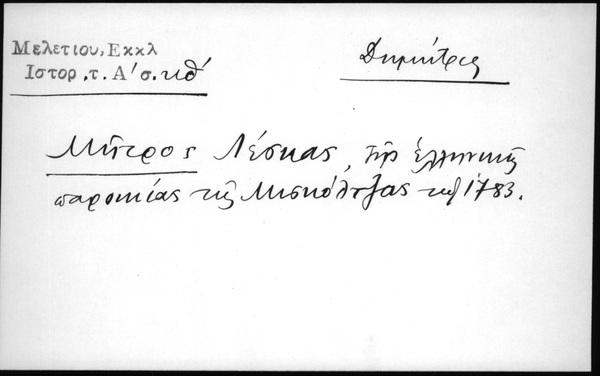 Μελετιου, Εκκλ
Ιστορ, τ. Α' σ. κθ'
Δημήτριος
Μῆτρος Λέσκας, τῆς ἑλληνικῆς
παροικίας τῆς Μισκόλτζας τῷ 1783.